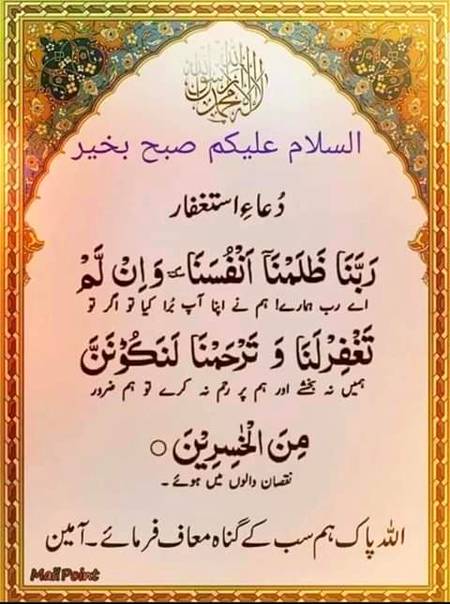 لا إله إلا الله محمد رسول الله
السلام عليكم صبح بخير
دُعاءِ استغفار
رَبَّنَا ظَلَمْنَآ اَنْفُسَنَا وَاِنْ لَّمْ
اے رب ہمارے! ہم نے اپنا آپ بُرا کیا تو اگر تو
تَغْفِرْلَنَا وَ تَرْحَمْنَا لَنَكُوْنَنَّ
ہمیں نہ بخشے اور ہم پر رحم نہ کرے تو ہم ضرور
مِنَ الْخٰسِرِيْنَ ○
نقصان والوں میں ہوئے ۔
اللہ پاک ہم سب کے گناہ معاف فرمائے ۔ آمین
Maii Point